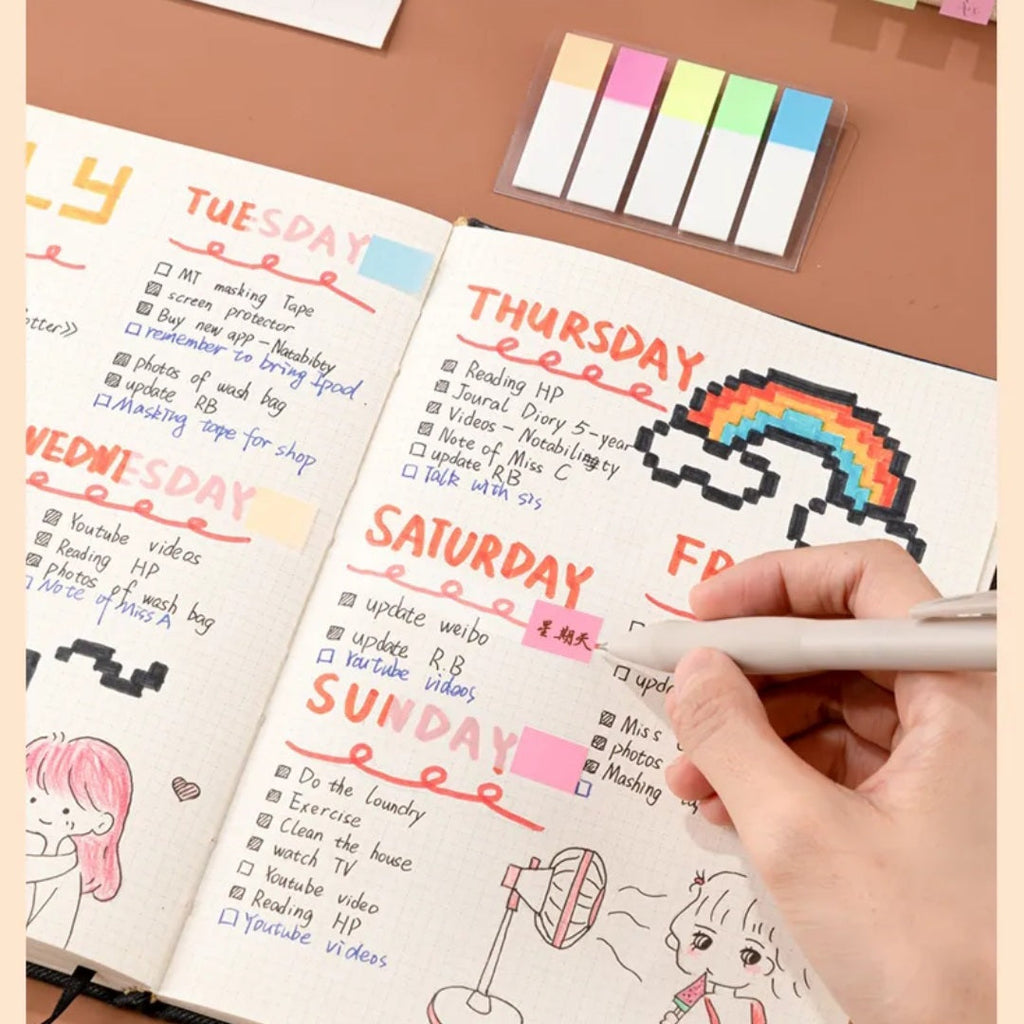 LY
TUESDAY
MT masking Tape
screen protector
Buy new app - Natabibty
remember to bring Ipad.
photos of wash bag
update RB
Masking tape for shop
otter》
WEDNESDAY
Youtube videos
Reading HP
photos of wash bag
Note of Miss A
THURSDAY
Reading HP
Joural Diary 5-year
Videos - Notability
Note of Miss C
update RB
Talk with sis
SATURDAY
update weibo
星期天
update R.B
Youtube videos
SUNDAY
Do the loundry
Exercise
Clean the house
watch TV
Youtube video
Reading HP
Youtube videos
FR
upd
Miss
photos
Mashing